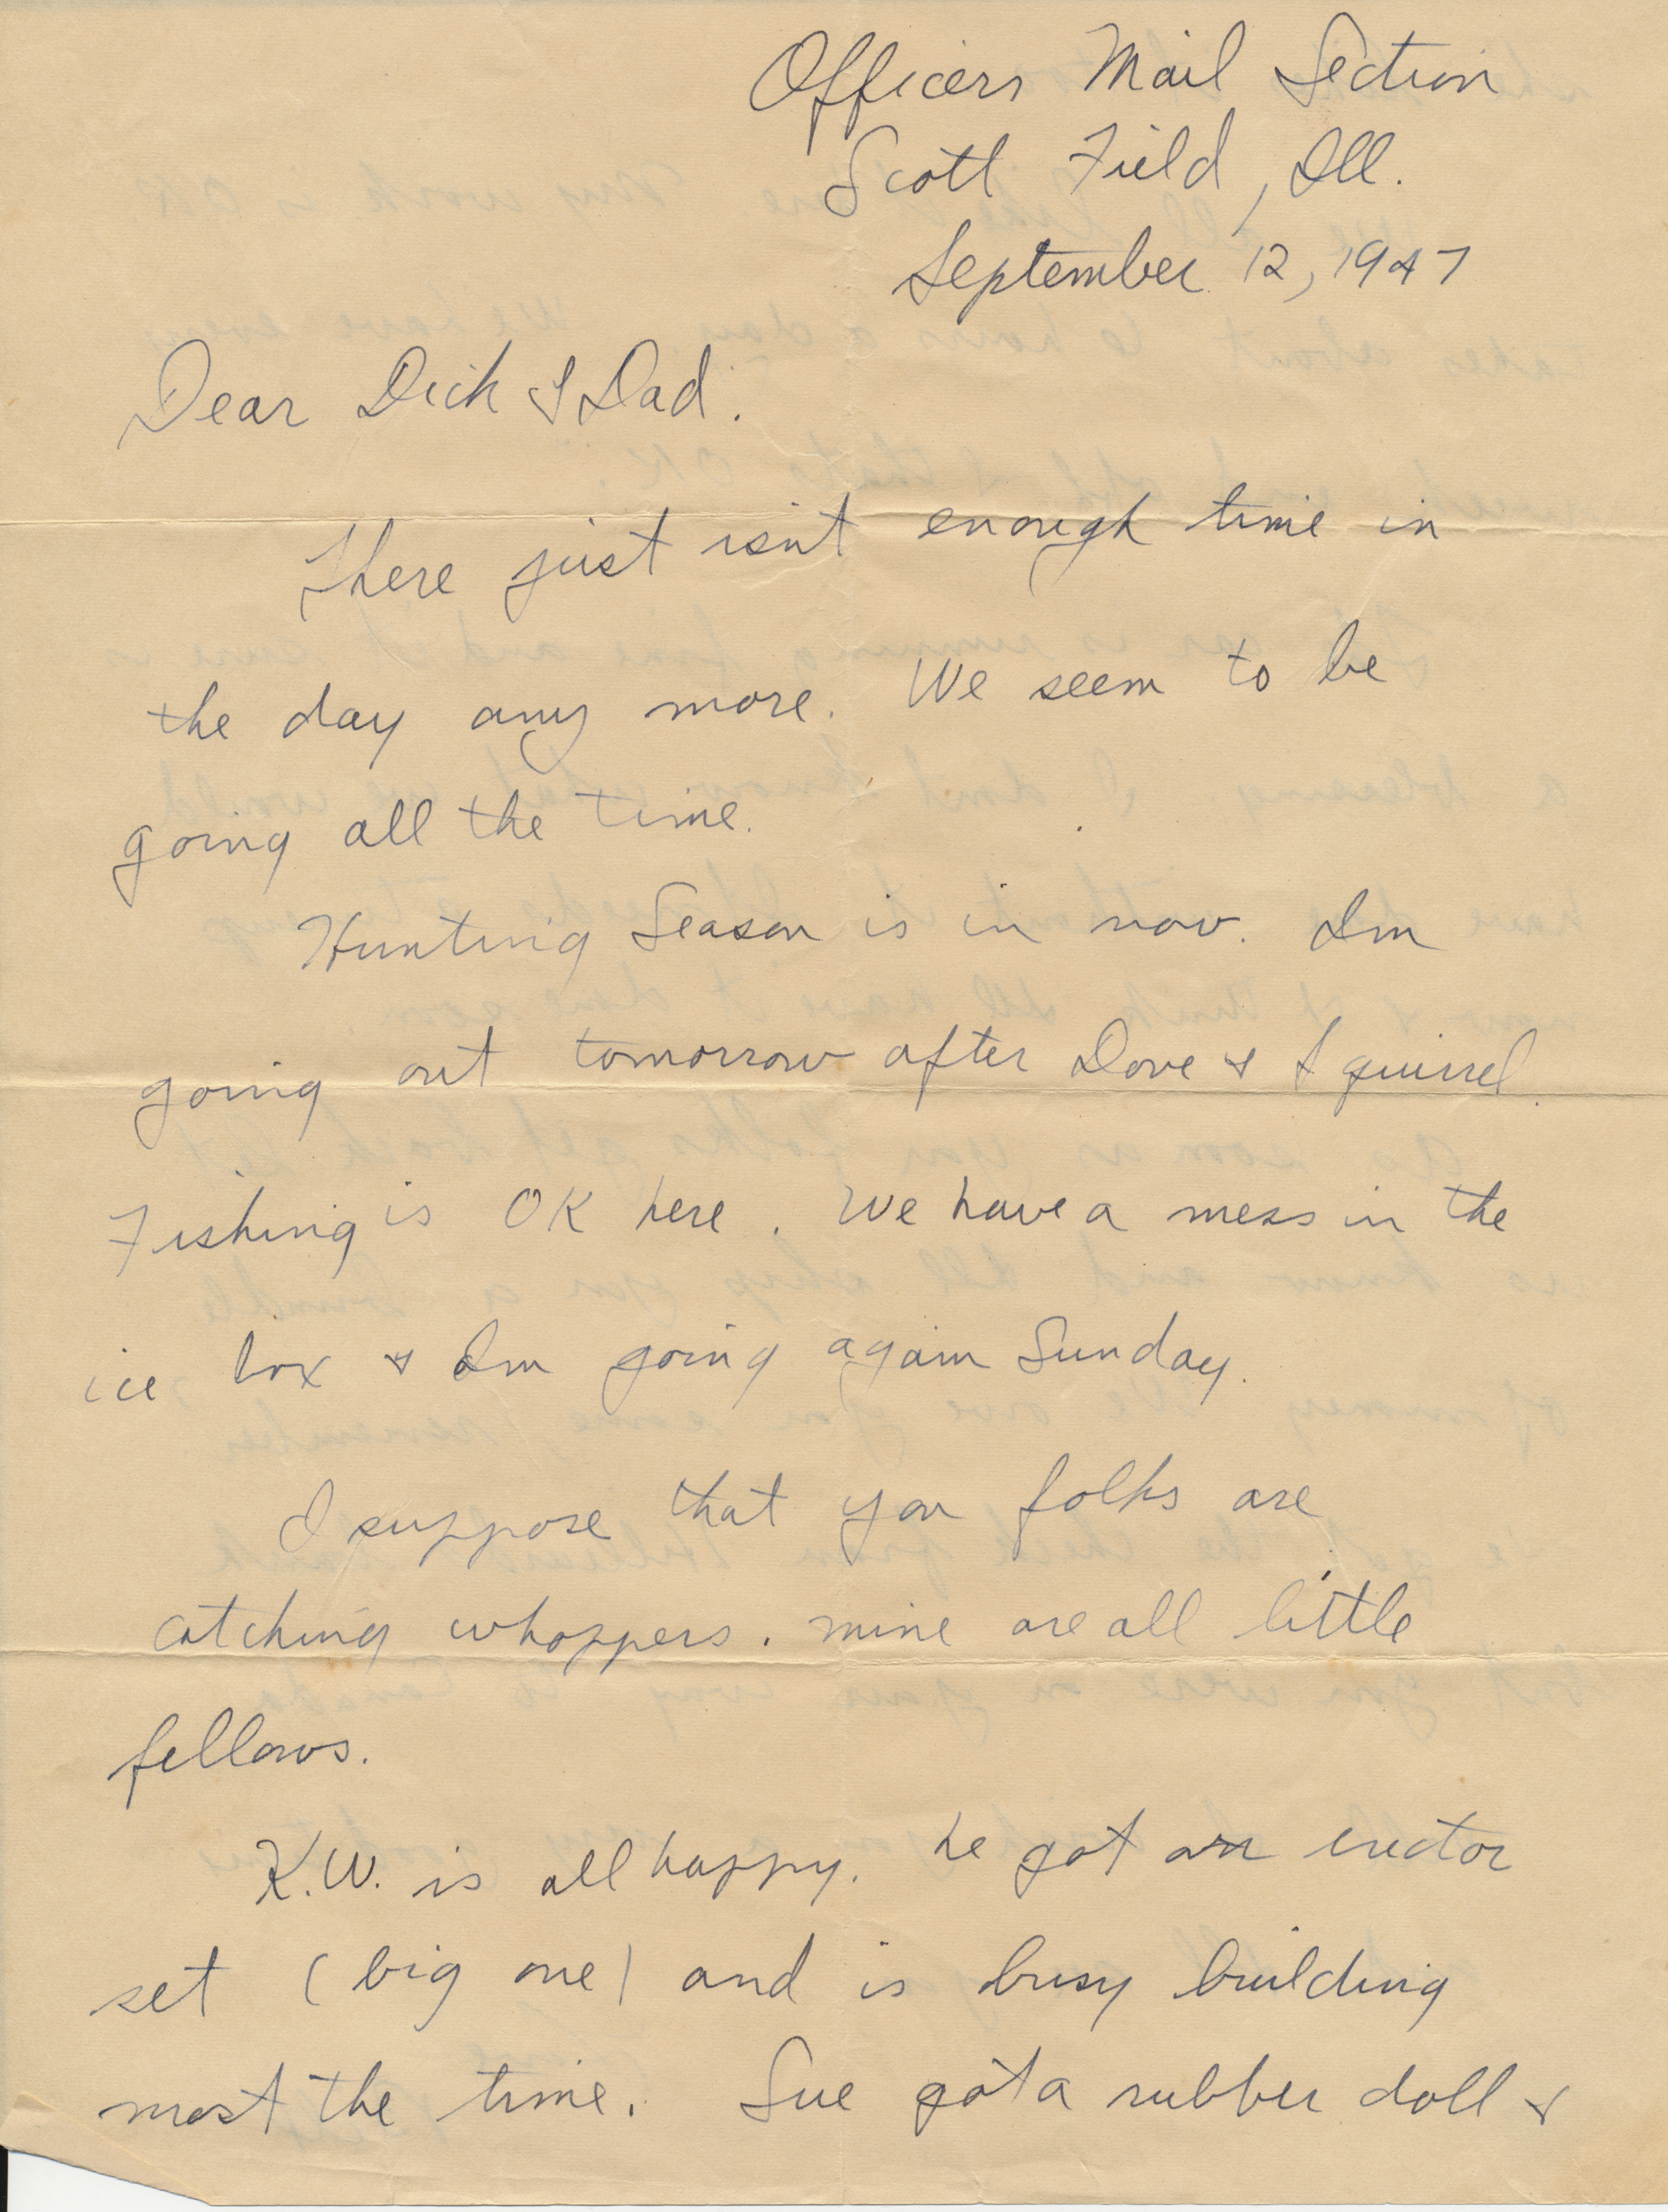 Officers Mail Section
Scott Field, Ill.
September 12, 1947
Dear Dick & Dad.
There just isn't enough time in
the day any more. We seem to be
going all the time.
Hunting Season is in now. Im
going out tomorrow after Dove & Squirrel.
Fishing is OK here. We have a mess in the
ice box & Im going again Sunday.
I suppose that you folks are
catching whoppers. mine are all little
fellows.
K.W. is all happy. he got an erector
set (big one) and is busy building
most the time. Sue got a rubber doll &